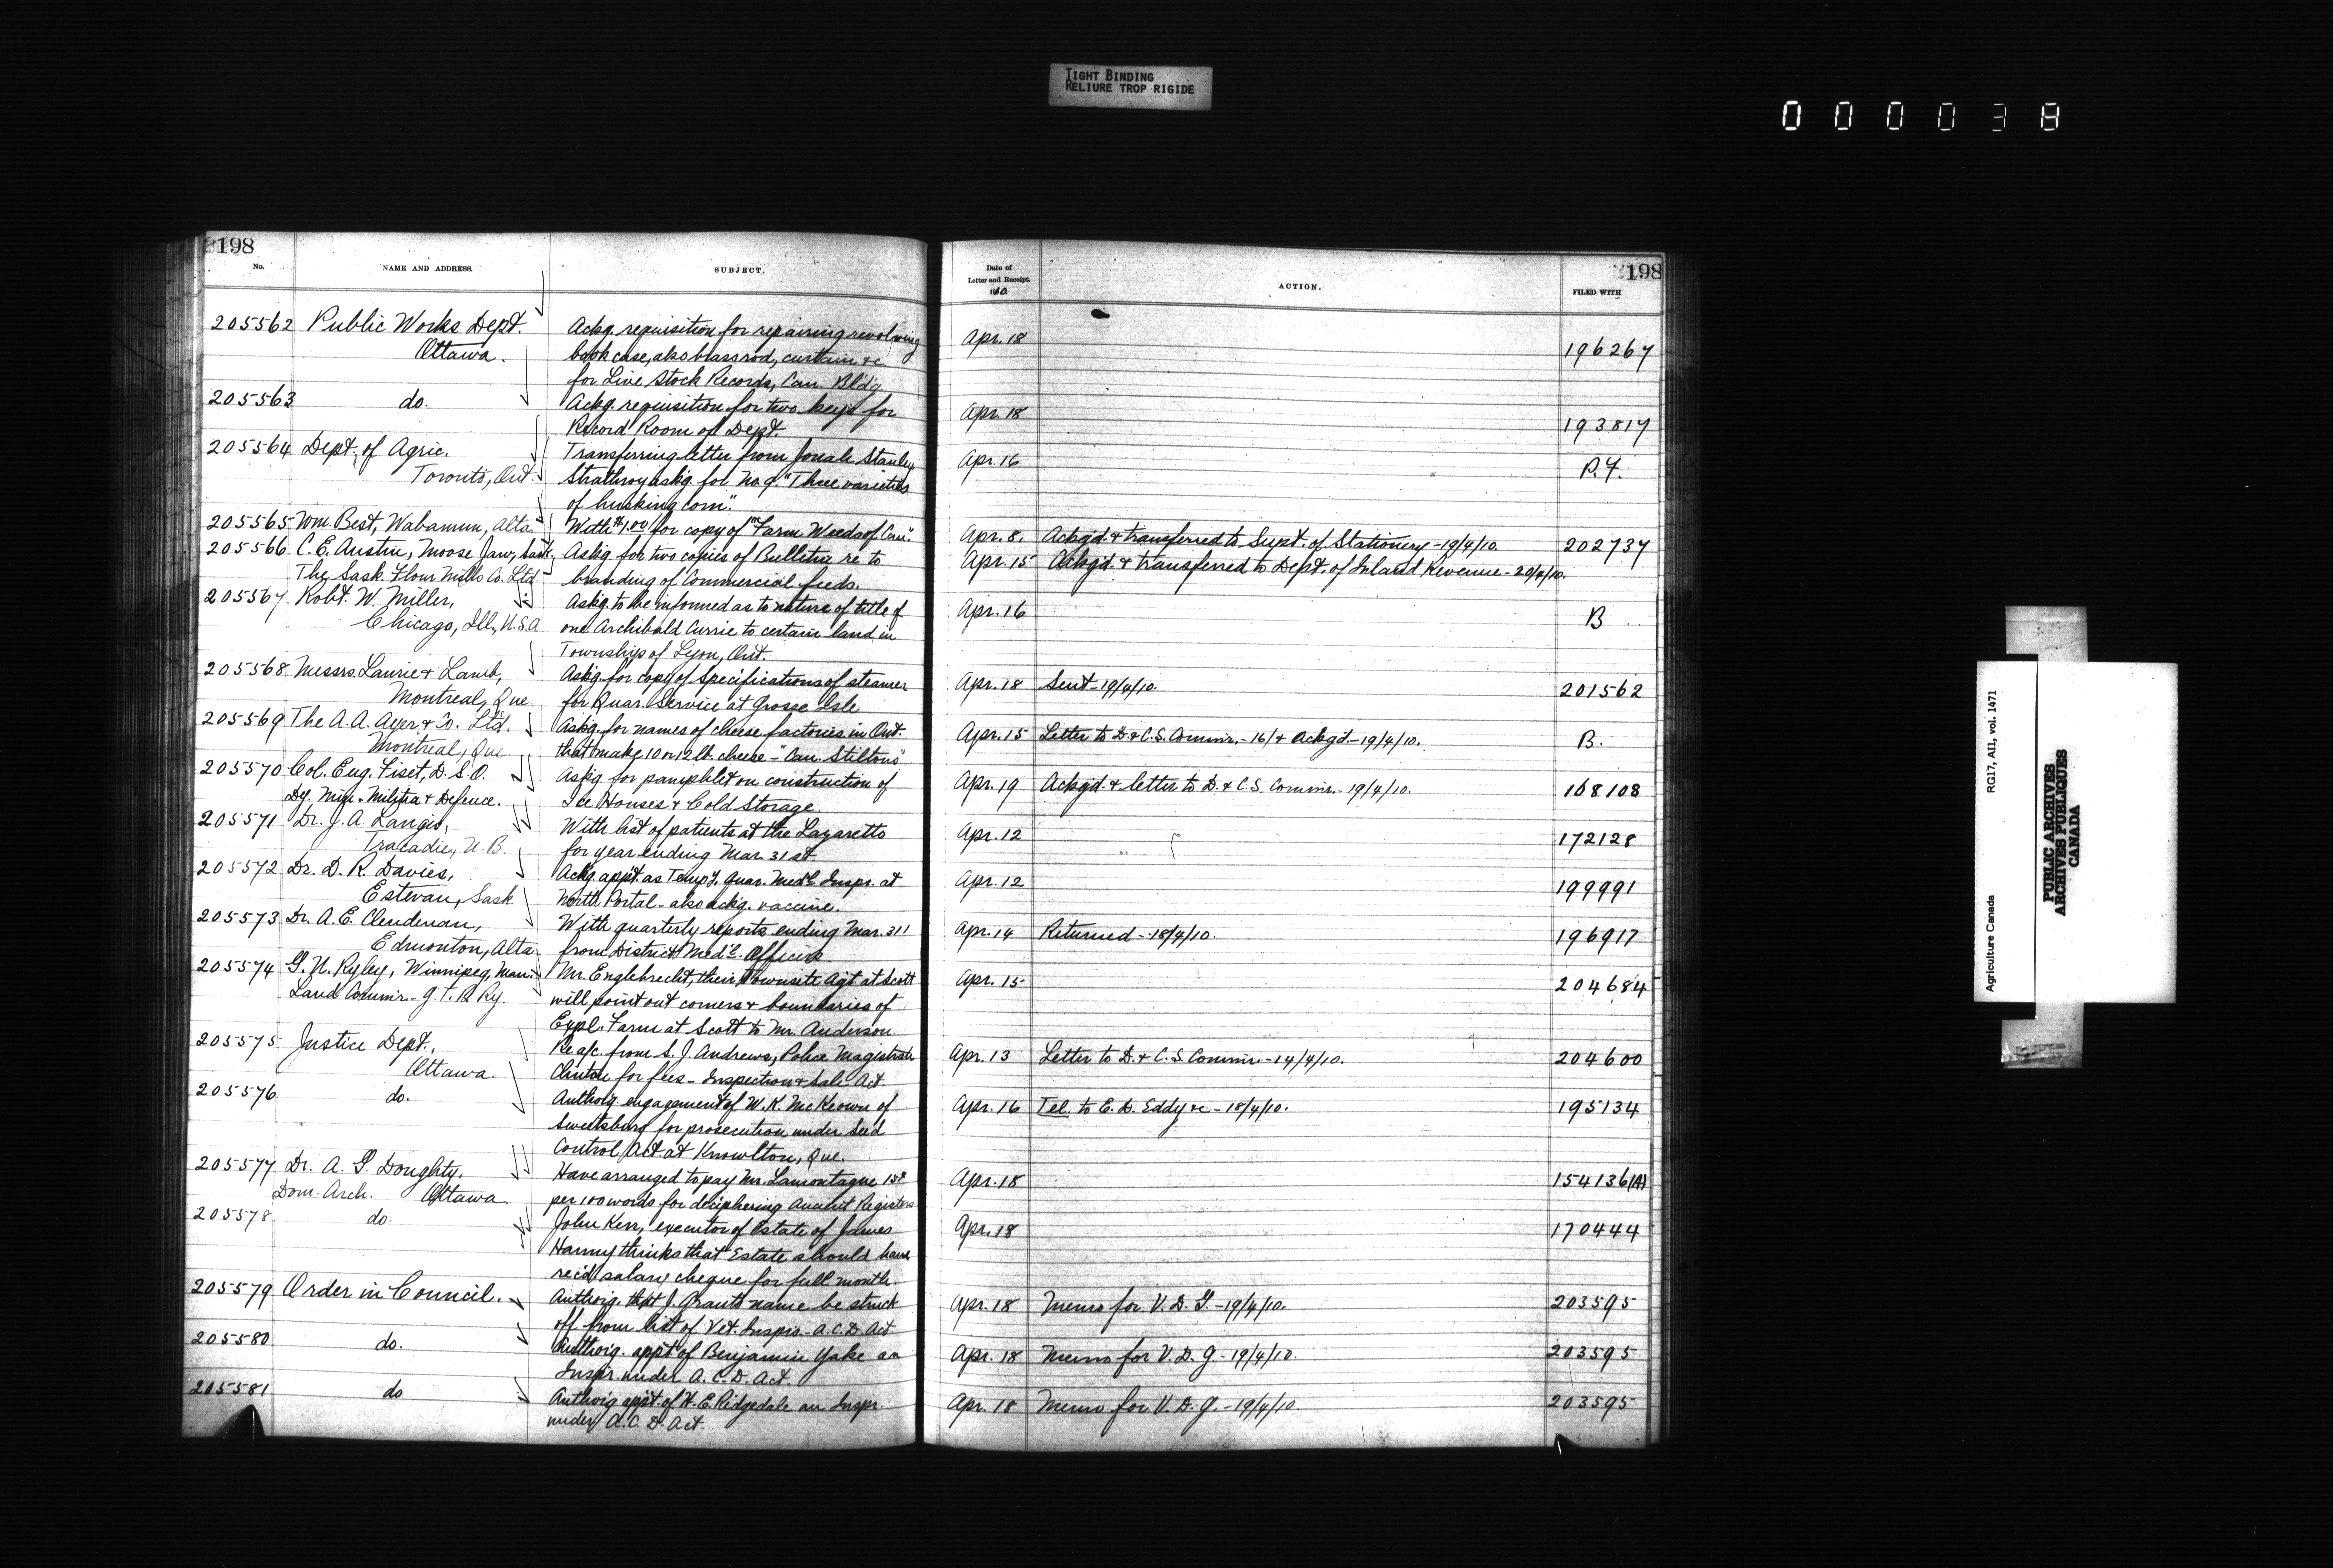 TIGHT BINDING
RELIURE TROP RIGIDE
000038
198
No.
NAME AND ADDRESS.
SUBJECT.
205562 Public Works Dept. Ackg. requisition for repairing revolving
Ottawa. book case, also brass rod, curtain &c.
for Live Stock Records, Can. Bldg
205563 do. Ackg. requisition for two keys for
Record Room of Dept.
205564 Dept. of Agric. Transferring letter from Stanley
Toronto, Ont. Strathroy askg. for No 9. "Three varieties
of husking corn".
205565 Wm. Best, Wabamun, Alta. With $1.00 for copy of "Farm Weeds of Can".
205566 C. E. Austin, Moose Jaw, Sask. Askg. for two copies of Bulletin re to
The Sask. Flour Mills Co. Ltd branding of Commercial feeds.
205567 Robt. W. Miller, Askg. to be informed as to nature of title of
Chicago, Ill, U.S.A one Archibald Currie to certain land in
Township of Lyon, Ont.
205568 Messrs. Laurie & Lamb, Askg. for copy of specifications of steamer
Montreal, Que for Quar. Service at Grosse Isle
205569 The A. A. Ayer & Co. Ltd. Askg. for names of cheese factories in Ont.
Montreal, Que that make 10 or 12 lb. cheese - "Can. Stiltons"
205570 Col. Eug. Fiset, D.S.O. Askg for pamphlet on construction of
Dy. Min. Militia & Defence. Ice Houses & Cold Storage
205571 Dr. J. A. Langis, With list of patients at the Lazaretto
Tracadie, N. B. for year ending Mar. 31st
205572 Dr. D. R. Davies, Ackg. appt. as Temp'y. Quar. Med'l Inspr. at
Estevan, Sask North Portal - also ackg. vaccine.
205573 Dr. A. E. Clendenan, With quarterly reports ending Mar. 31
Edmonton, Alta from District Med'l. Officers
205574 G. U. Ryley, Winnipeg, Man. Mr. Englebrecht, their Townsite Agt. at Scott
Land Commr. - G. T. P. Ry. will point out corners & boundaries of
Expl. Farm at Scott to Mr. Anderson
205575 Justice Dept., Re a/c. from S. J. Andrews, Police Magistrate
Ottawa. Clinton for fees - Inspection & Sale Act
205576 do. Authorg. engagement of W. K. McKeown of
Sweetsburg for prosecution under Seed
Control Act at Knowlton, Que.
205577 Dr. A. G. Doughty, Have arranged to pay Mr. Lamontagne 15¢
Dom. Arch. Ottawa per 100 words for deciphering ancient Registers
205578 do. John Kerr, executor of Estate of James
Hanny thinks that Estate should have
rec'd salary cheque for full month.
205579 Order in Council. Authorig. that J. Grants name be struck
off from list of Vet. Insprs. - A. C. D. Act
205580 do. Authorig. appt. of Benjamin Yake an
Inspr. under A. C. D. Act.
205581 do Authorig appt. of H. E. Ridgedale an Inspr.
under A. C. D. Act.
198
Date of
Letter and Receipt.
1910
ACTION.
FILED WITH
Apr. 18 196267
Apr. 18 193817
Apr. 16 P.F.
Apr. 8. Ackgd. & transferred to Supt. of Stationery - 19/4/10. 202737
Apr. 15 Ackgd. & transferred to Dept. of Inland Revenue - 20/4/10.
Apr. 16 B
Apr. 18 Sent - 19/4/10. 201562
Apr. 15 Letter to D. & C. S. Commr. - 16/ & Ackgd - 19/4/10. B.
Apr. 19 Ackgd. & letter to D. & C. S. Commr. - 19/4/10. 168108
Apr. 12 172128
Apr. 12 199991
Apr. 14 Returned - 18/4/10. 196917
Apr. 15 204684
Apr. 13 Letter to D. & C. S. Commr. - 14/4/10. 204600
Apr. 16 Tel. to E. D. Eddy &c - 18/4/10. 195134
Apr. 18 154136(A)
Apr. 18 170444
Apr. 18 Memo for V. D. G. - 19/4/10. 203595
Apr. 18 Memo for V. D. G - 19/4/10. 203595
Apr. 18 Memo for V. D. G. - 19/4/10. 203595
Agriculture Canada RG17, AII, vol. 1471
PUBLIC ARCHIVES
ARCHIVES PUBLIQUES
CANADA